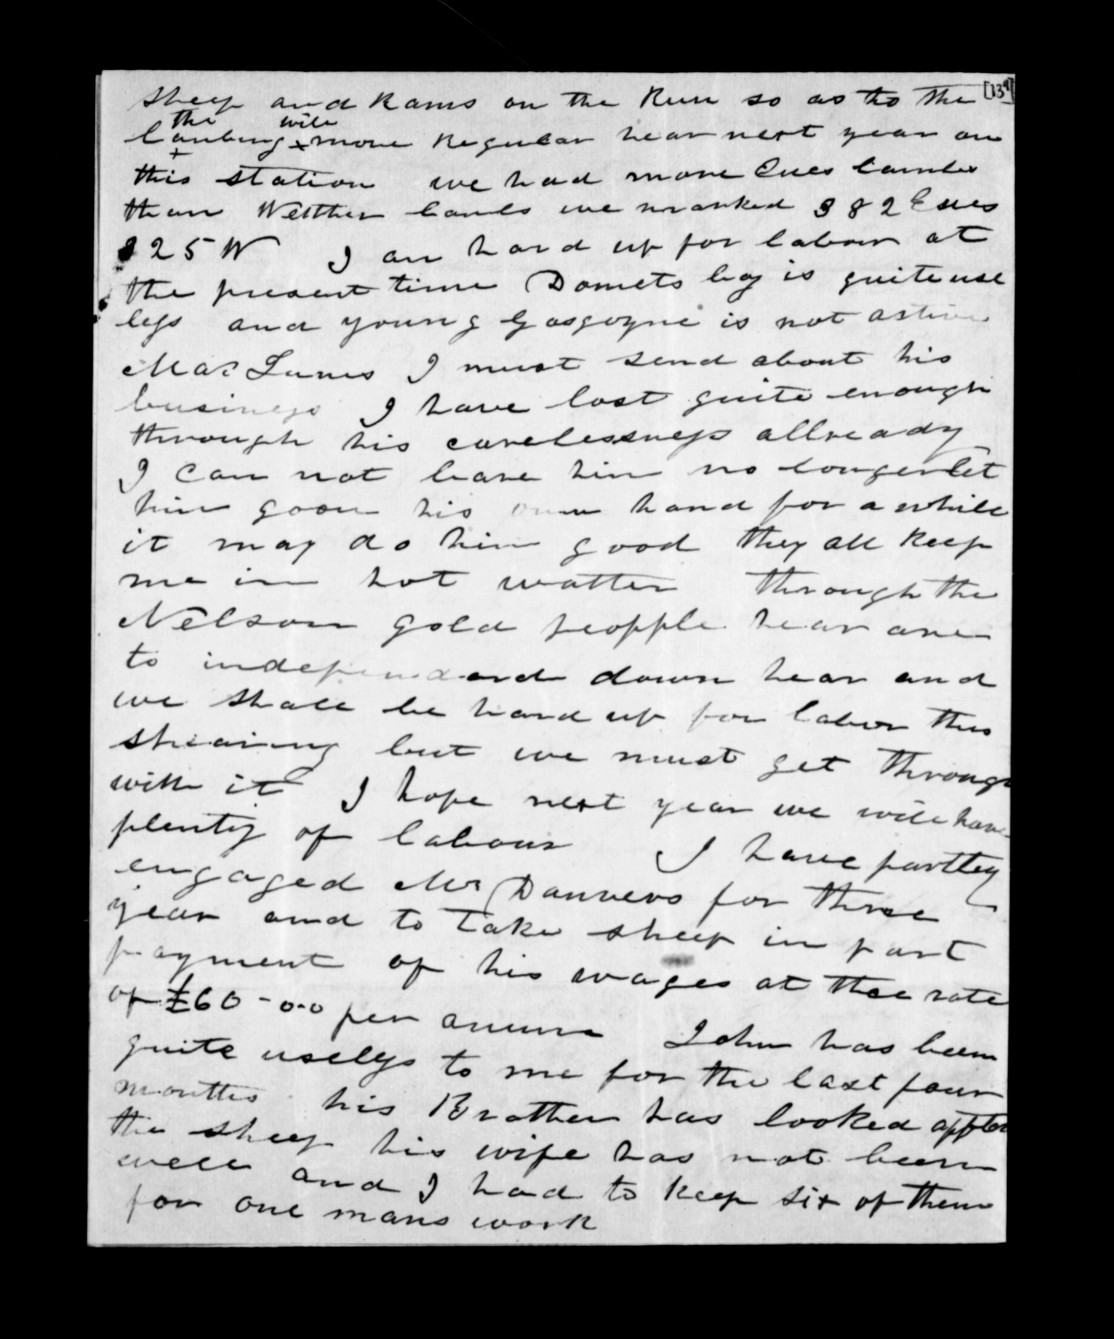 [13]
sheep and Rams on the Run so as to the
the will
lambing x more Regular hear next year on
this station we had more Ewes lambs
than Wetther lambs we marked 382 Ewes
325 W I am hard up for labour at
the present time Domets boy is quite use
less and young Gasgoyne is not active
Mac I must send about his
business I have lost quite enough
through his carelessness allready
I can not leave him no longer let
him goon his own hand for a while
it may do him good they all keep
me in hot watter through the
Nelson gold peopple hear are
to independand down hear and
we shall be hard up for labor this
shearing but we must get through
with it I hope next year we will have
plenty of labour I have partley
engaged Mr Danvers for three
year and to take sheep in part
payment of his wages at thee rate
of £60-0-0 per annum John has been
quite uselys to me for the last four
months his Brother has looked affter
the sheep his wife has not been
well and I had to keep six of them
for one mans work